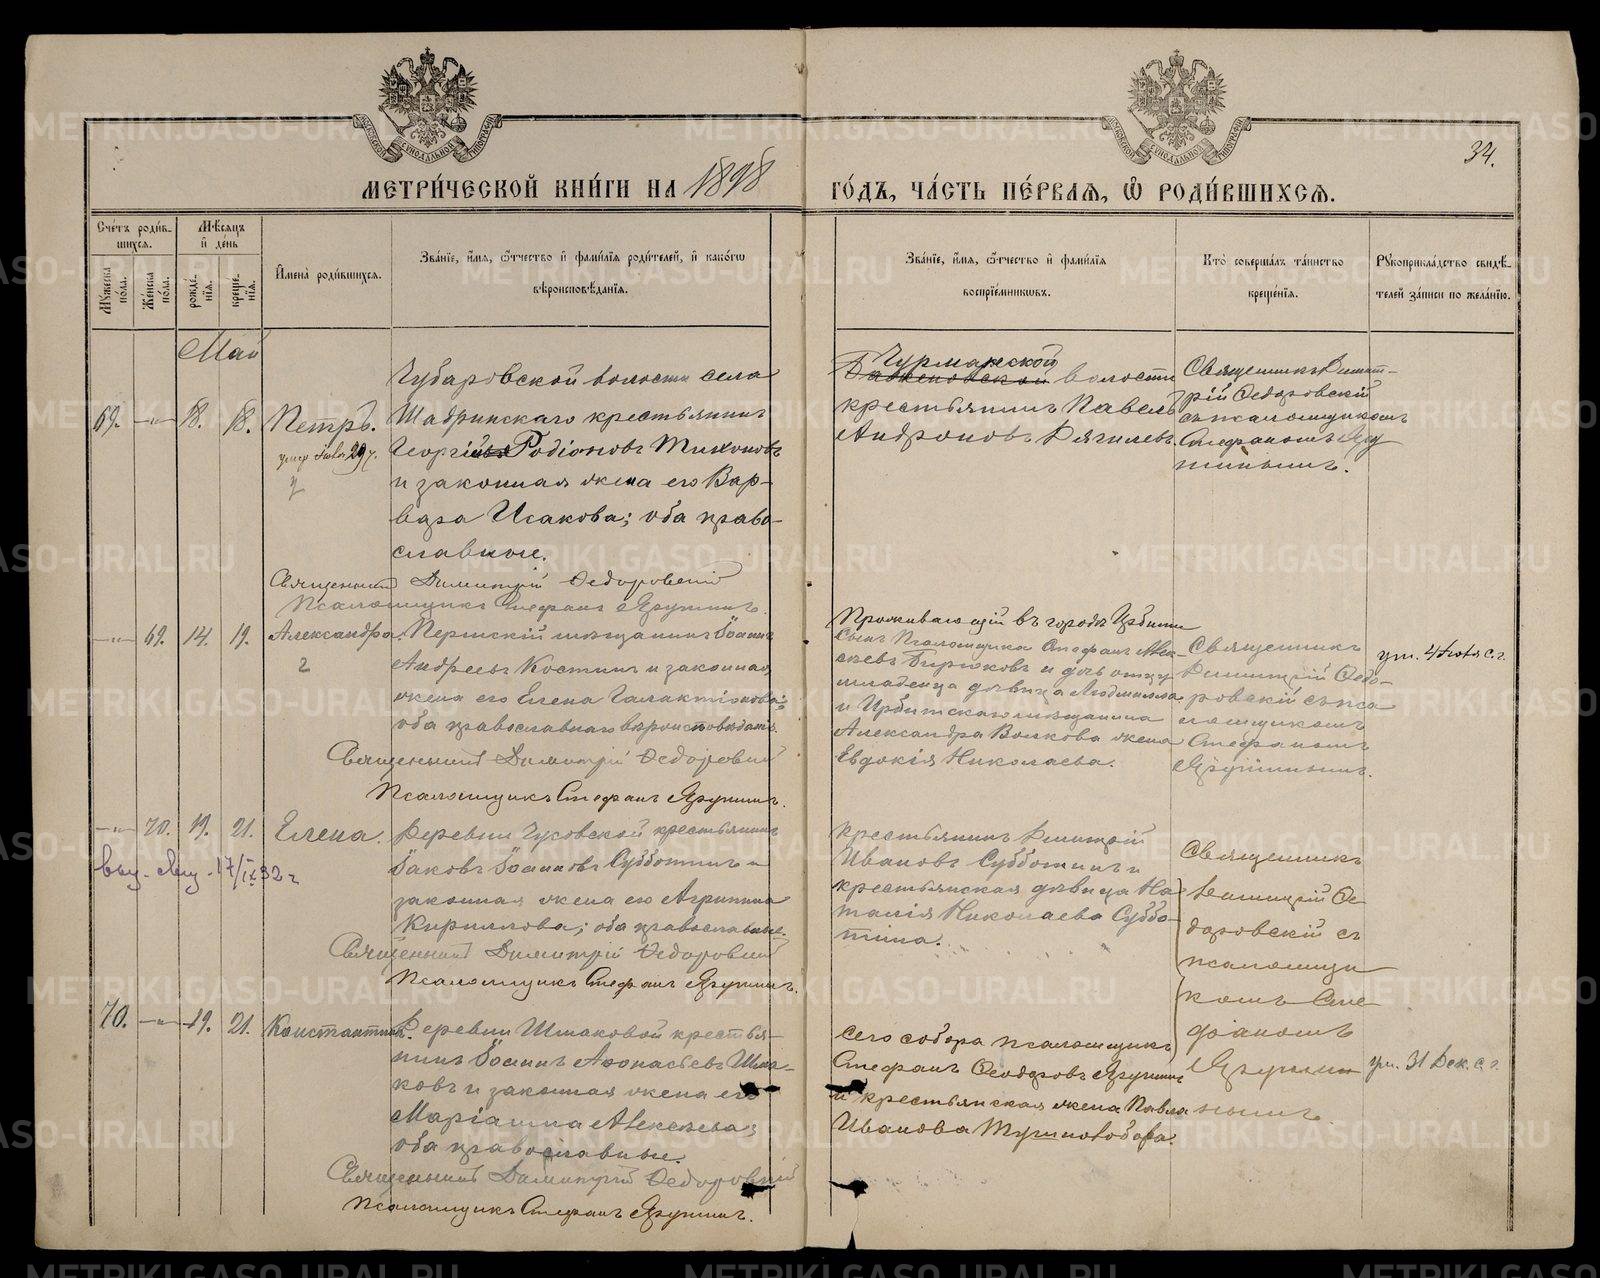 МЕТРИ́ЧЕСКОЙ КНИ́ГИ НА 1898 ГО́ДЪ, ЧА́СТЬ ПЕ́РВАЯ, Ѿ РОДИ́ВШИХСЯ.
34.
Сче́тъ роди́вшихся.
Мѣ́сяцъ и де́нь
Му́жеска по́ла.
Же́нска по́ла.
рожде́нїя.
креще́нїя.
Имена̀ роди́вшихся.
Зва́нїе, и́мя, ѻ́тчество и фами́лїя роди́телей, и како́гѡ
вѣроисповѣ́данїя.
Зва́нїе, и́мя, ѻ́тчество и фами́лїя
воспрїе́мникѡвъ.
Кто̀ соверша́лъ та́инство
креще́нїя.
Рукоприкла́дство свидѣ́-
телей за́писи по жела́нїю.
Май
69. — 18. 18. Петръ.
Чубаровской волости села
Шадринскаго крестьянинъ
Георгій Родіоновъ Тихоновъ
и законная жена его Вар-
вара Исакова; оба право-
славные.
Священникъ Димитрій Ѳедоровскій
Псаломщикъ Стефанъ Ярушинъ.
волости
крестьянинъ Павелъ
Андроновъ
Священникъ Димит-
рій Ѳедоровскій
съ псаломщикомъ
Стефаномъ Яру
шинымъ.
— 69. 14. 19. Александра.
Пермскій мѣщанинъ Іоаннъ
Андреевъ Костинъ и законная
жена его Елена Галактіонова;
оба православнаго вѣроисповѣданія.
Священникъ Димитрій Ѳедоровскій
Псаломщикъ Стефанъ Ярушинъ.
Проживающій въ городѣ Ирбити
сынъ псаломщика Стефанъ Алек-
сѣевъ Бирюковъ и дочь отца
младенца дѣвица Людмилла
и Ирбитскаго мѣщанина
Александра Волкова жена
Евдокія Николаева.
Священникъ
Димитрій Ѳедо-
ровскій съ пса
ломщикомъ
Стефаномъ
Ярушинымъ.
ум. 4 Іюля с. г.
— 70. 19. 21. Елена.
17/IX 32 г
Деревни Чусовской крестьянинъ
Іаковъ Іоанновъ Субботинъ и
законная жена его Агрипина
Кириллова; оба православные.
Священникъ Димитрій Ѳедоровскій
Псаломщикъ Стефанъ Ярушинъ.
Крестьянинъ Димитрій
Ивановъ Субботинъ и
крестьянская дѣвица На
талія Николаева Суббо-
тина.
Священникъ
Димитрій Ѳе
доровскій съ
псаломщи
комъ Сте
фаномъ
Яруши
нымъ
70. — 19. 21. Константинъ.
Деревни Шмаковой крестья-
нинъ Іоаннъ Аѳонасьевъ Шма-
ковъ и законная жена его
Маріанна Алексѣева;
оба православные.
Священникъ Димитрій Ѳедоровскій
Псаломщикъ Стефанъ Ярушинъ.
Сего собора псаломщикъ
Стефанъ Ѳеодоровъ Ярушинъ
и крестьянская жена Павла
Иванова
ум. 31 Дек. с. г.
METRIKI.GASO-URAL.RU